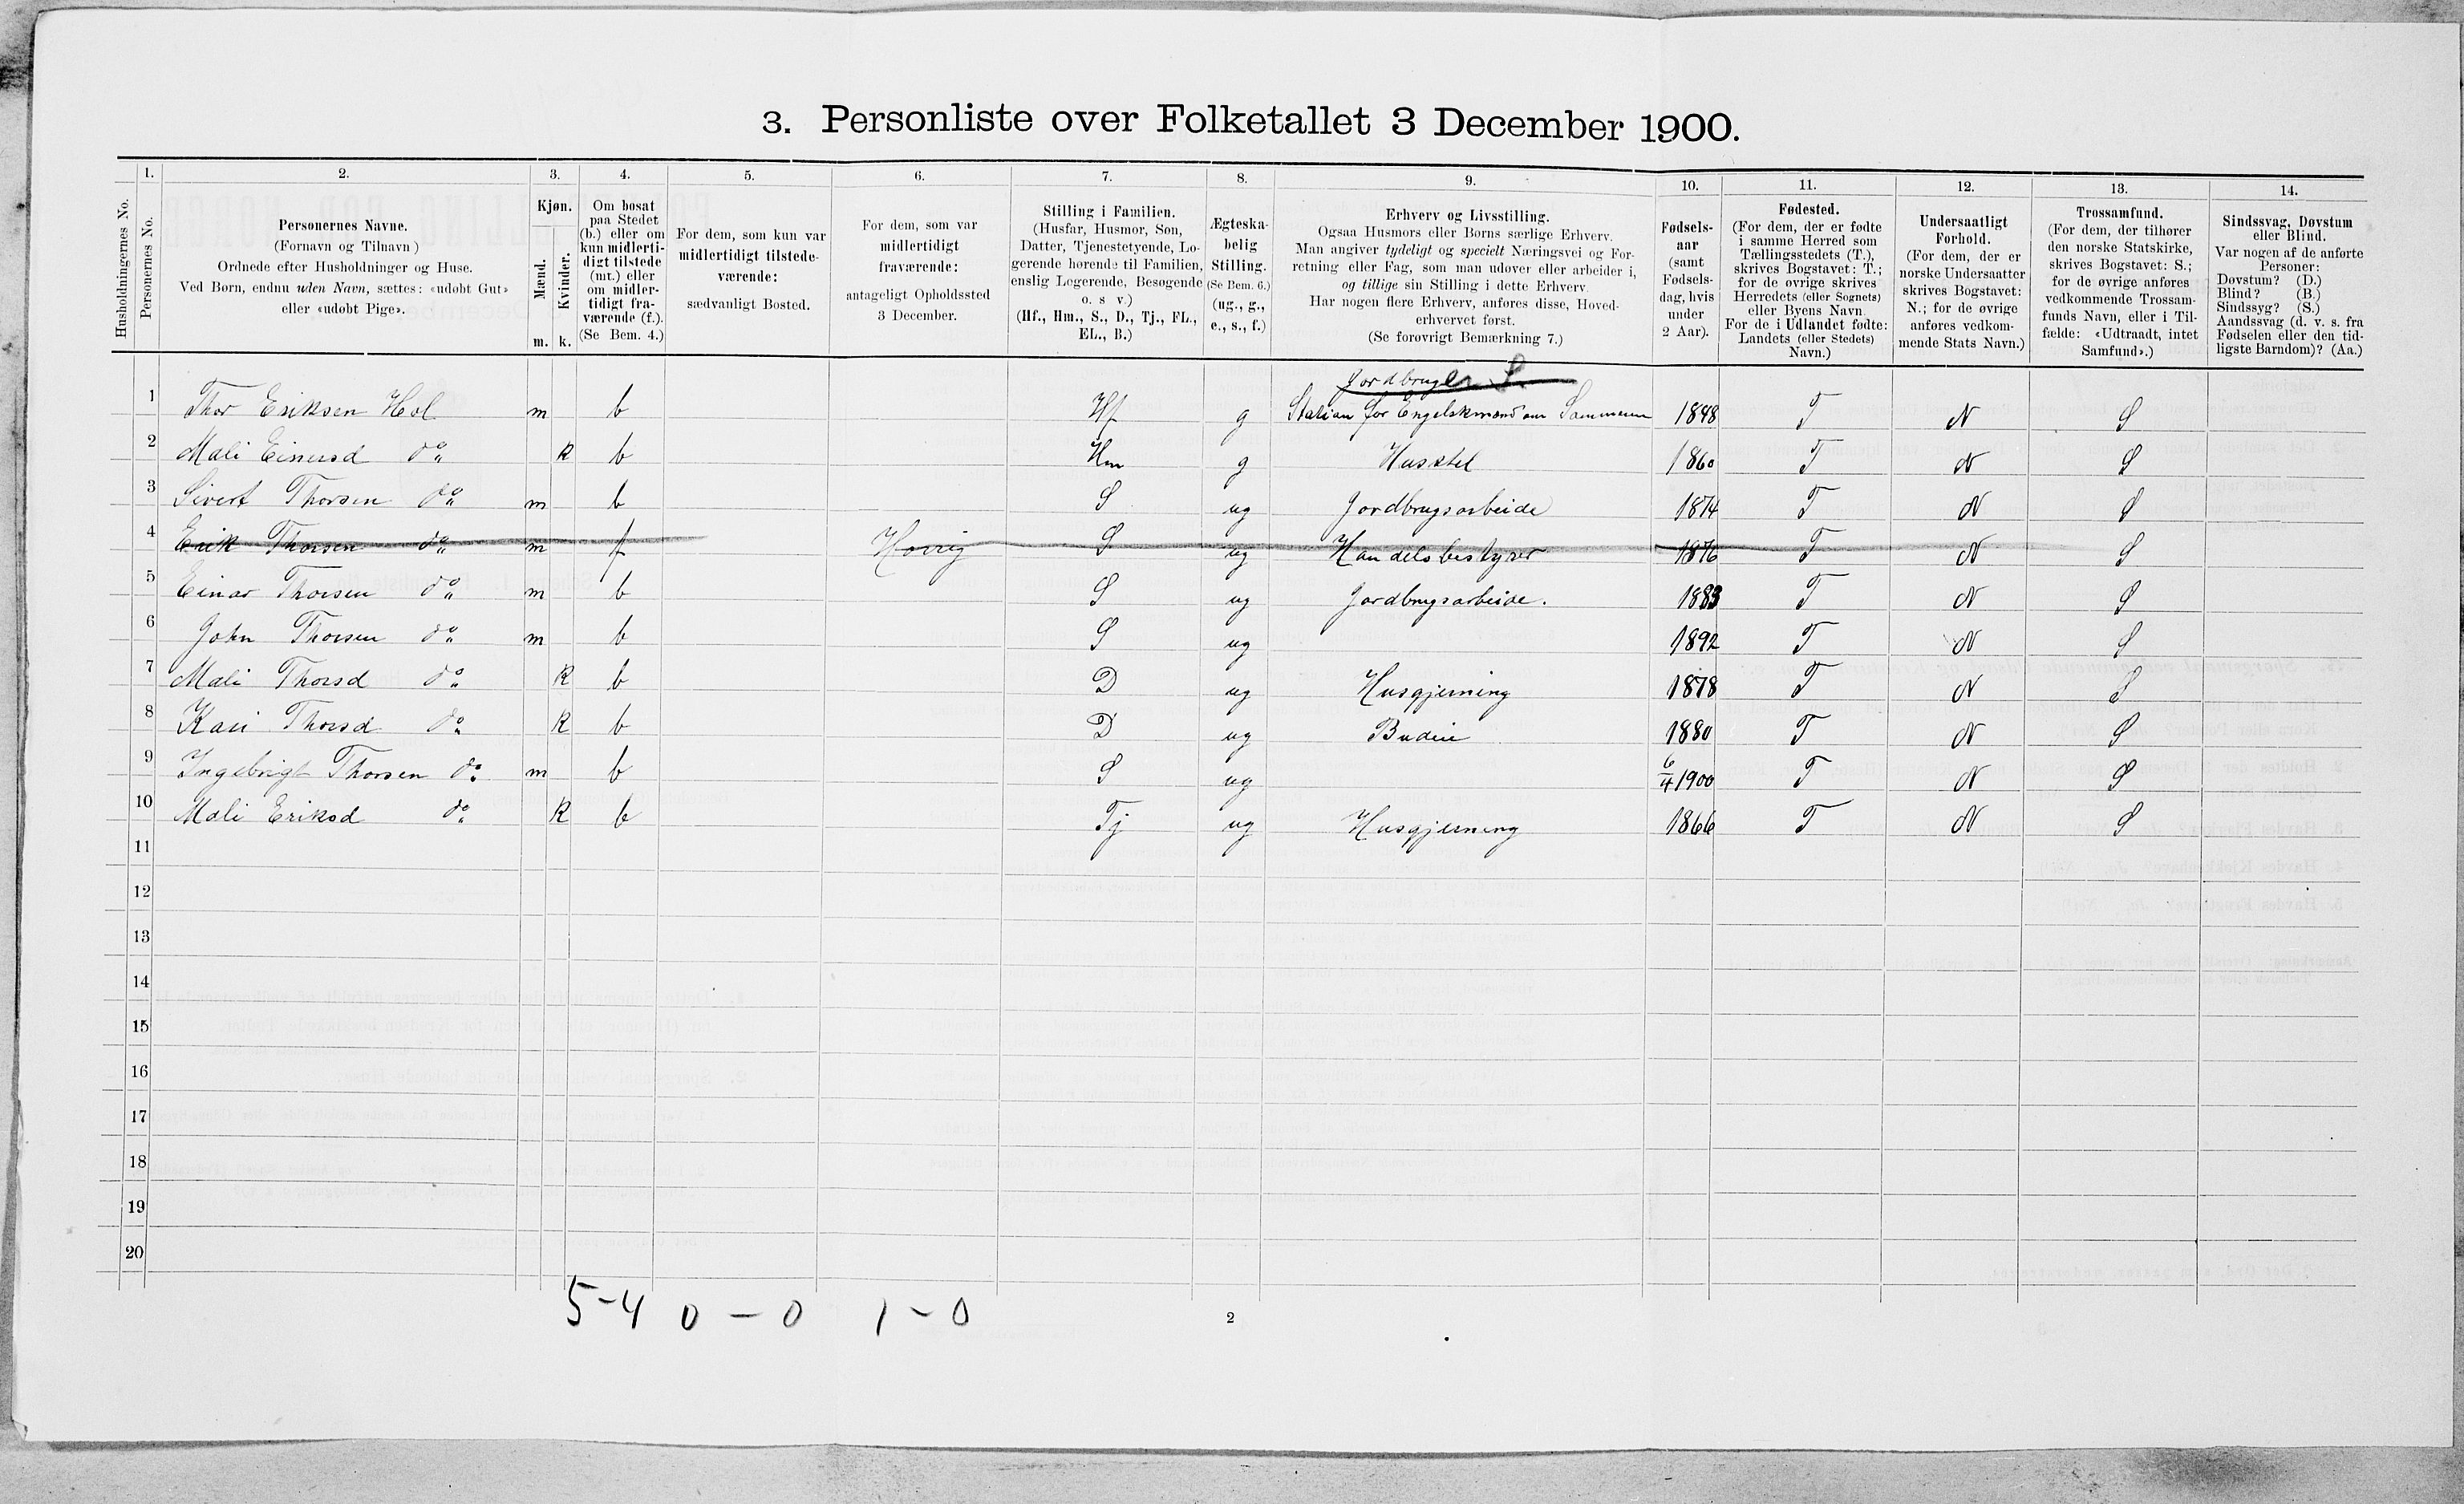 3. Personliste over Folketallet 3 December 1900.
Husholdningernes No.
1. Personernes No.
2.
Personernes Navne.
(Fornavn og Tilnavn)
Ordnede efter Husholdninger og Huse.
Ved Børn, endnu uden Navn, sættes: «udøbt Gut»
eller «udøbt Pige».
3.
Kjøn.
Mænd. Kvinder.
m. k.
4.
Om bosat
paa Stedet
(b.) eller om
kun midlerti-
digt tilstede
(mt.) eller
om midler-
tidigt fra-
værende (f.).
(Se Bem. 4.)
5.
For dem, som kun var
midlertidigt tilstede-
værende:
sædvanligt Bosted.
6.
For dem, som var
midlertidigt
fraværende:
antageligt Opholdssted
3 December.
7.
Stilling i Familien.
(Husfar, Husmor, Søn,
Datter, Tjenestetyende, Lo-
gerende hørende til Familien,
enslig Logerende, Besøgende
o. s v.)
(Hf., Hm., S., D., Tj., FL.,
EL., B.)
8.
Ægteska-
belig
Stilling.
(Se Bem. 6.)
(ug., g.,
e., s., f.)
9.
Erhverv og Livsstilling.
Ogsaa Husmors eller Børns særlige Erhverv.
Man angiver tydeligt og specielt Næringsvei og For-
retning eller Fag, som man udøver eller arbeider i,
og tillige sin Stilling i dette Erhverv.
Har nogen flere Erhverv, anføres disse, Hoved-
erhvervet først.
(Se forøvrigt Bemærkning 7.)
10.
Fødsels-
aar
(samt
Fødsels-
dag, hvis
under
2 Aar).
11.
Fødested.
(For dem, der er fødte
i samme Herred som
Tællingsstedets (T.),
skrives Bogstavet: T.;
for de øvrige skrives
Herredets (eller Sognets)
eller Byens Navn.
For de i Udlandet fødte:
Landets (eller Stedets)
Navn.)
12.
Undersaatligt
Forhold.
(For dem, der er
norske Undersaatter
skrives Bogstavet:
N.; for de øvrige
anføres vedkom-
mende Stats Navn.)
13.
Trossamfund.
(For dem, der tilhører
den norske Statskirke,
skrives Bogstavet: S.;
for de øvrige anføres
vedkommende Trossam-
funds Navn, eller i Til-
fælde: «Udtraadt, intet
Samfund».)
14.
Sindssvag, Døvstum
eller Blind.
Var nogen af de anførte
Personer:
Døvstum? (D.)
Blind? (B.)
Sindssyg? (S.)
Aandssvag (d. v. s. fra
Fødselen eller den tid-
ligste Barndom)? (Aa.)
Jordbruger S
1 Thor Eriksen Hol m b Hf g Station for Engelskmænd om Sommeren 1848 T N S
2 Mali Einersd do k b Hm g Husstel 1860 T N S
3 Sivert Thorsen do m b S ug Jordbrugsarbeide 1874 T N S
4 Erik Thorsen do m f S ug Handelsbestyrer 1876 T N S
5 Einar Thorsen do m b S ug Jordbrugsarbeide. 1883 T N S
6 John Thorsen do m b S ug 1892 T N S
7 Mali Thorsd do k b D ug Husgjerning 1878 T N S
8 Kari Thorsd do k b D ug Budeie 1880 T N S
9 Ingebrigt Thorsen do m b S ug 6/4 1900 T N S
10 Mali Eriksd do k b Tj ug Husgjerning 1866 T N S
11
12
13
14
15
16
17
18
19
20
5-4 0-0 1-0
2